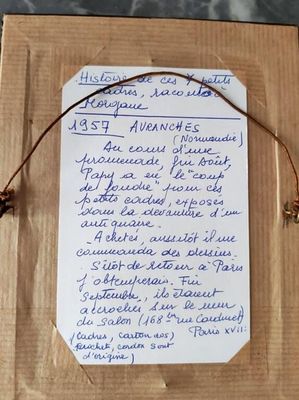 Histoire de ces 4 petits
cadres, racontée à
Morgane
1957 AVRANCHES
(Normandie)
Au cours d'une
promenade, fin Août,
Papy a eu le "coup
de foudre" pour ces
petits cadres, exposés
dans la devanture d'un
antiquaire.
- Achetés, aussitôt il me
commanda des dessins.
- Sitôt de retour à Paris
j'obtempérais. Fin
Septembre, ils étaient
accrochés sur le mur
du salon (168 rue Cardinet)
Paris XVII:
(Cadres, cartonnés)
crochets, cordon sont
d'origine)